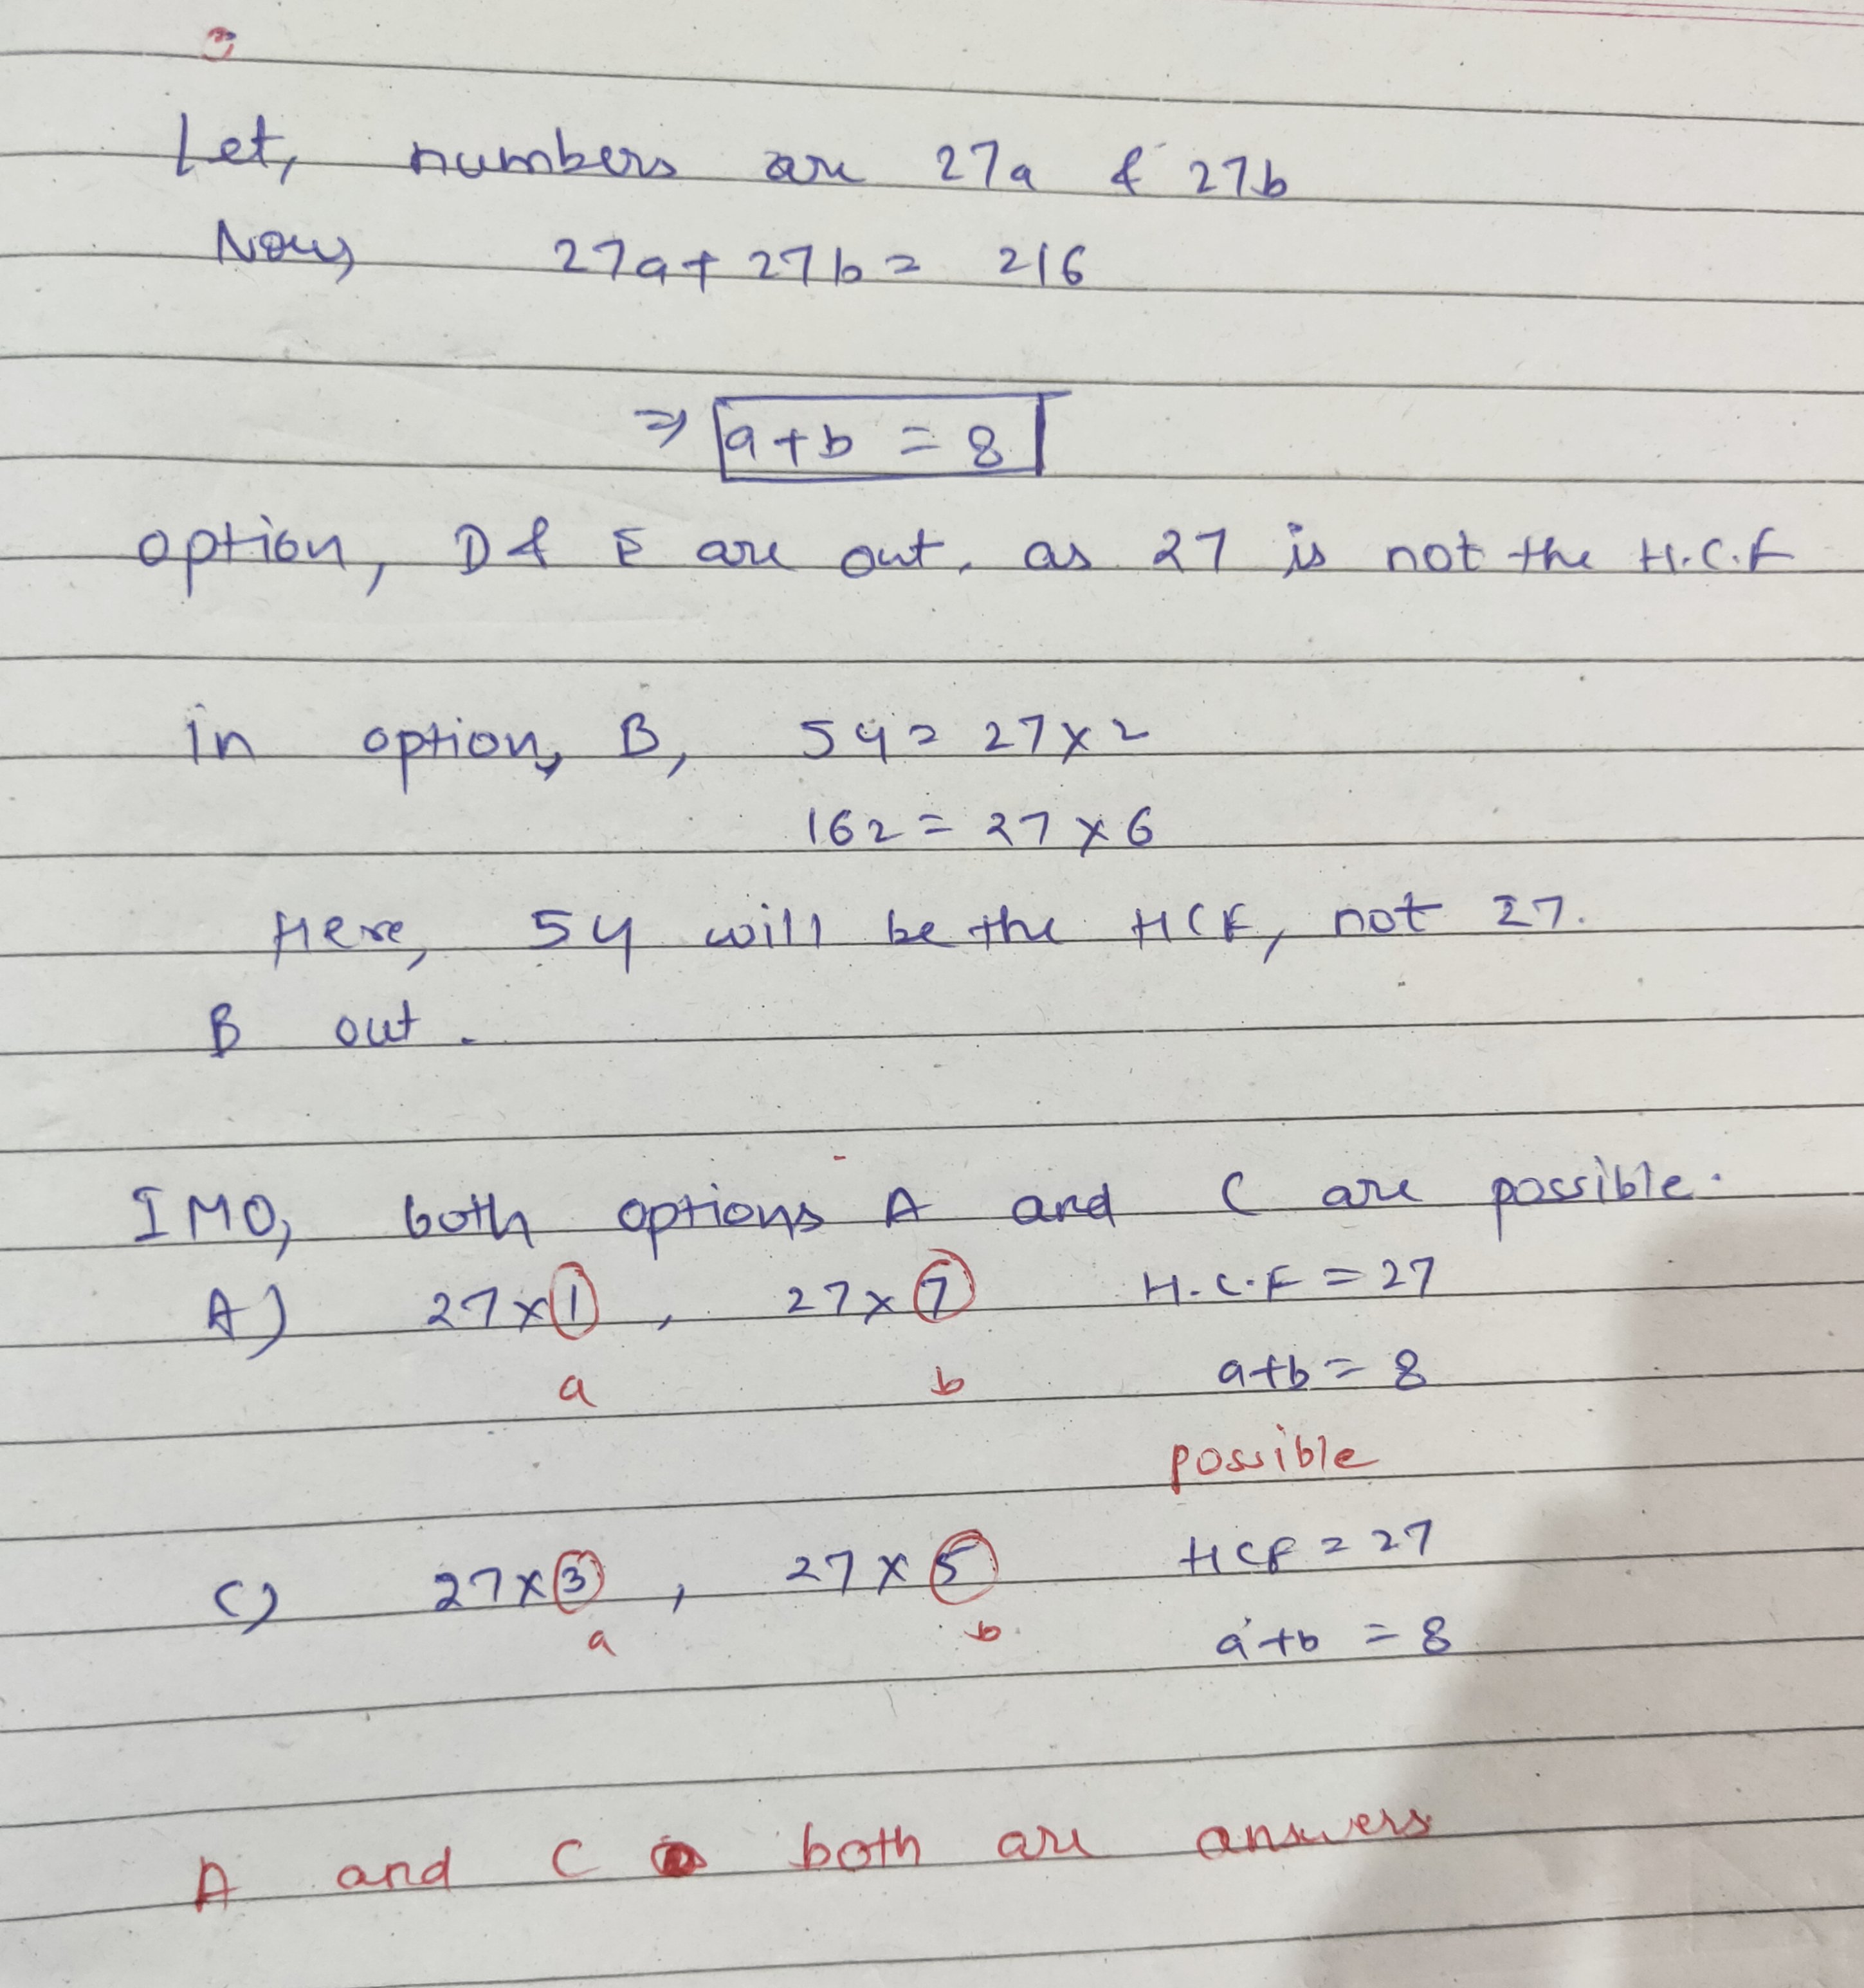 Let, numbers are 27a & 27b
Now, 27a + 27b = 216
⇒ a + b = 8
option, D & E are out, as 27 is not the H.C.F
in option, B, 54 = 27 x 2
162 = 27 x 6
Here, 54 will be the HCF, not 27.
B out.
IMO, both options A and C are possible.
A) 27 x 1 , 27 x 7 H.C.F = 27
a b a+b = 8
possible
C) 27 x 3 , 27 x 5 HCF = 27
a b a+b = 8
A and C both are answers